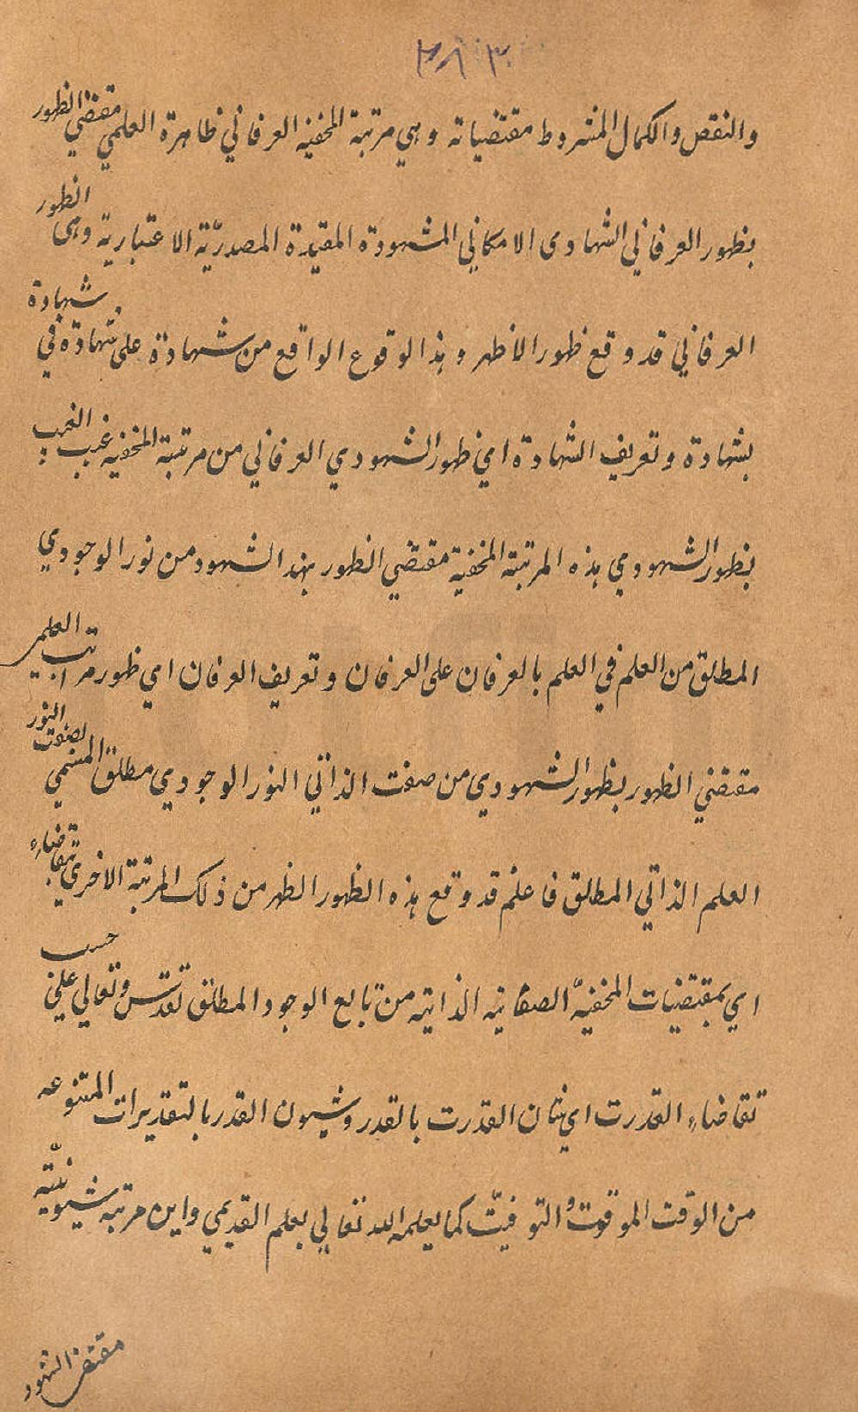 ٢٨٣
والنقص والكمال المشروط مقتضياته وهي مرتبة المخفية العرفاني ظاهرة العلمي مقتضي الظهور
بظهور العرفاني الشهادى الامكاني المشهودة المقيدة المصدريّة الاعتبارية وهى الظهور
العرفاني قد وقع ظهور الاظهر وهذا الوقوع الواقع من شهادة على شهادة في شهادة
بشهادة وتعريف الشهادة اي ظهور الشهودي العرفاني من مرتبة المخفيه غيب الغيب
بظهور الشهودي هذه المرتبة المخفية مقتضي الظهور بهذا الشهود من نور الوجودي
المطلق من العلم في العلم بالعرفان على العرفان وتعريف العرفان اي ظهور مراتب العلمي
مقتضي الظهور بظهور الشهودي من صفت الذاتي النور الوجودي مطلق المسمي بصفت النور
العلم الذاتي المطلق فاعلم قد وقع هذه الظهور الظهر من ذلك المرتبة الاخري بتقاضاء
اي بمقتضيات المخفيّه الصفاتيه الذاتيه من تابع الوجود المطلق تقدّس وتعالي علي حسب
تقاضاء القدرت اي شان القدرت بالقدر وشيون القدر بالتقديرات المتنوعه
من الوقت الموقوت والتوقيت كما يعلمه الله تعالي بعلم القديمي واين مرتبه شيونيّته
مقتضى الشهود